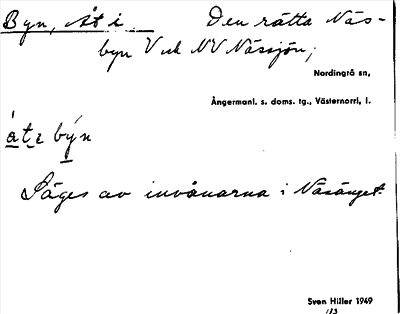 Byn, Åt i Den rätta Näs-
byn V och NV Nässjön;
Nordingrå sn,
Ångermanl. s. doms. tg., Västernorrl, l.
åtɩ býn
Säges av invånarna i Näsänget.
Sven Hiller 1949